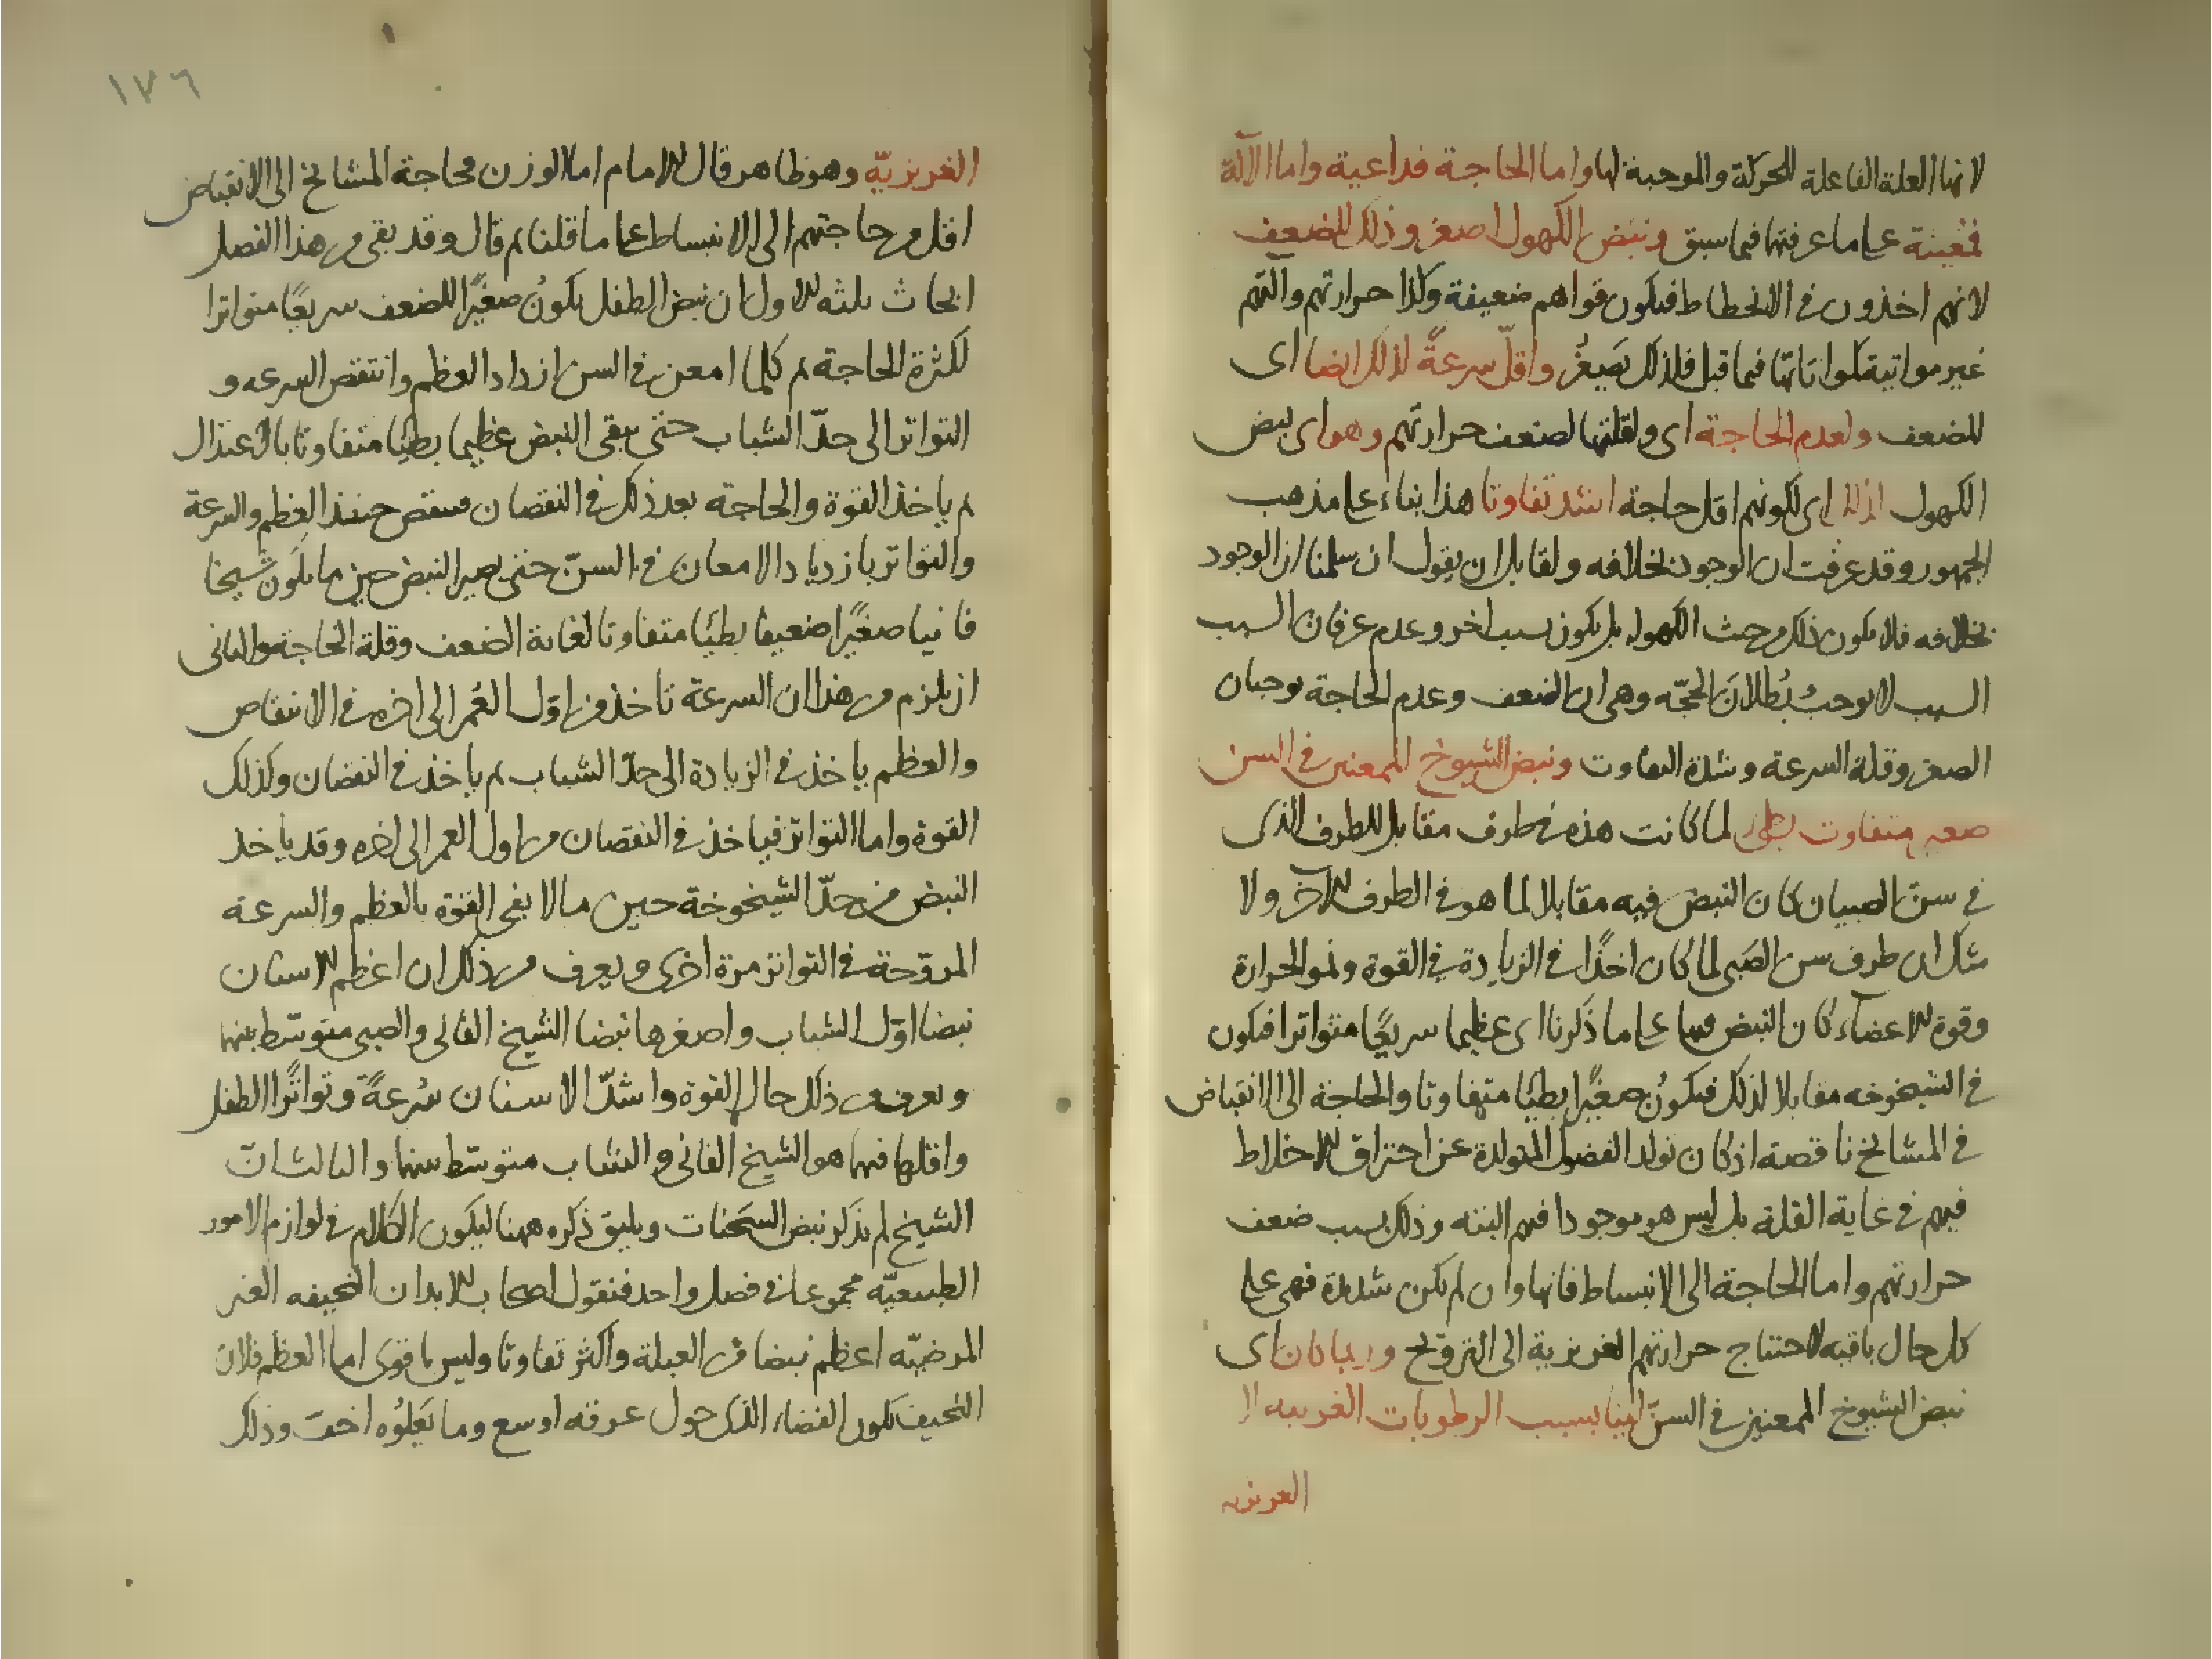 لانها العلة الفاعلة للحركة والموجبة لها واما الحاجة فداعية واما الآلة
فمعينة على ما عرفتها فيما سبق ونبض الكهول اصغر وذلك للضعف
لانهم اخذون في الانحطاط فيكون قواهم ضعيفة وكذا حرارتهم وآلتهم
غير مواتية كمواتاتها فيما قبل فلذلك يَصغُر واقلّ سرعةً لذلك ايضا اى
للضعف ولعدم الحاجة اى ولقلتها لضعف حرارتهم وهو اى نبض
الكهول لذلك اى لكونهم اقل حاجة اشد تفاوتا هذا بناء على مذهب
الجمهور وقد عرفت ان الوجود بخلافه ولقايل ان يقول ان سلمنا ان الوجود
بخلافه فلا يكون ذلك من حيث الكهولة بل يكون بسبب اخر وعدم عرفان السبب
السبب لا يوجبُ بُطلانَ الحجّه وهى ان الضعف وعدم الحاجة يوجبان
الصغر وقلة السرعة وشدة التفاوت ونبض الشيوخ الممعنين في السن
صغير متفاوت بطى لما كانت هذه في طرف مقابل للطرف الذى
في سنّ الصبيان كان النبض فيه مقابلا لما هو في الطرف الآخر ولا
شك ان طرف سن الصَبى لما كان اخذًا في الزيادة في القوة ونمو الحرارة
وقوة الاعضآء كان النبض فيها على ما ذكرنا اى عظيما سريعًا متواترا فيكون
في الشيخوخه مقابلا لذلك فيكونُ صغيرًا بطيئا متفاوتا والحاجة الى الانقباض
في المشايخ ناقصة اذ كان تولد الفضول المتولدة عن احتراق الاخلاط
فيهم في غاية القلة بل ليس هو موجودا فيهم البته وذلك بسبب ضعف
حرارتهم واما الحاجة الى الانبساط فانها وان لم يكن شديدة فهى على
كل حال باقيه لاحتياج حرارتهم الغريزية الى الترويح وربما كان اى
نبض الشيوخ الممعنين في السنّ لينا بسبب الرطوبات الغريبه لا
الغريزيه
١٧٦
الغريزيّة وهو ظاهر قال الامام اما الوزن فحاجة المشايخ الى الانقباض
اقل من حاجتهم الى الانبساط على ما قلنا ثم قال وقد بقى من هذا الفصل
ابحاث ثلثه الاول ان نبض الطفل يكونُ صغيرًا للضعف سريعًا متواترا
لكثرة الحاجة ثم كلما امعن في السن ازداد العظم وانتقص السرعه و
التواتر الى حدّ الشباب حتى يبقى النبض عظيما بطيئا متفاوتا بالاعتدال
ثم ياخذ القوة والحاجة بعد ذلك في النقصان فينتقص حينئذ العظم والسرعة
والتواتر بازدياد الامعان في السنّ حتى يصير النبض حين ما يكون شيخا
فانيا صغيرًا ضعيفا بطيئا متفاوتا لغاية الضعف وقلة الحاجة والثانى
ان يلزم من هذا ان السرعة تاخذ من اوّل العُمر الى اخره في الانتقاص
والعظم ياخذ في الزيادة الى حدّ الشباب ثم ياخذ في النقصان وكذلك
القوة واما التواتر فياخذ في النقصان من اول العمر الى اخره وقد ياخذ
النبض من حدّ الشيخوخة حين ما لا يفى القوة بالعظم والسرعة
المروّحة في التواتر مرة اخرى ويعرف من ذلك ان اعظم الاسنان
نبضا اوّل الشباب واصغرها نبضا الشيخ الفانى والصبى متوسّط بينهما
ويعرف من ذلك حال القوة واشدّ الاسنان سُرعةً وتواترًا الطفل
واقلها فيهما هو الشيخ الفانى والشاب متوسّط بينهما والثالث ان
الشيخ لم يذكر نبض السَحنات ويليق ذكره ههنا ليكون الكلام في لوازم الامور
الطبيعيّه مجموعا في فصل واحد فنقول اصحاب الابدان النحيفه الغير
المرضيّه اعظم نبضا من العبلة واكثر تفاوتا وليس باقوى اما العظم فلان
النحيف يكون الفضاء الذى حول عرقه اوسع وما يَعلُوه اخف وذلك